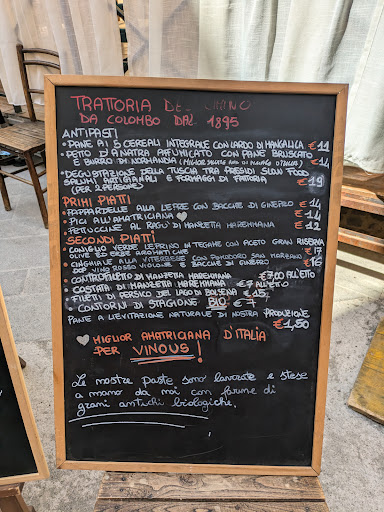 TRATTORIA DEL CIMINO
DA COLOMBO DAL 1895
ANTIPASTI
• PANE AI 5 CEREALI INTEGRALE CON LARDO DI MANGALICA €11
• PETTO D'ANATRA AFFUMICATO CON PANE BRUSCATO
E BURRO DI NORMANDIA €14
• DEGUSTAZIONE DELLA TUSCIA TRA PRESIDI SLOW FOOD
SALUMI ARTIGIANALI E FORMAGGI DI FATTORIA
(PER 2 PERSONE) €19
PRIMI PIATTI
• PAPPARDELLE ALLA LEPRE CON BACCHE DI GINEPRO €14
• PICI ALL'AMATRICIANA €14
• FETTUCCINE AL RAGÙ DI MANZETTA MAREMMANA €12
SECONDI PIATTI
• CONIGLIO VERDE LEPRINO IN TEGAME CON ACETO GRAN RISERVA
OLIVE ED ERBE AROMATICHE €17
• CINGHIALE ALLA VITERBESE CON POMODORO SAN MARZANO
DOP VINO ROSSO VIOLONE E BACCHE DI GINEPRO €16
• CONTROFILETTO DI MANZETTA MAREMMANA €7,00 ALL'ETTO
• COSTATA DI MANZETTA MAREMMANA €7 ALL'ETTO
• FILETTI DI PERSICO DEL LAGO DI BOLSENA €15
• CONTORNI DI STAGIONE BIO €7
PANE A LIEVITAZIONE NATURALE DI NOSTRA PRODUZIONE
€1,50
MIGLIOR AMATRICIANA D'ITALIA
PER VINOUS!
Le nostre paste sono lavorate e stese
a mano da noi con farine di
grani antichi biologiche.